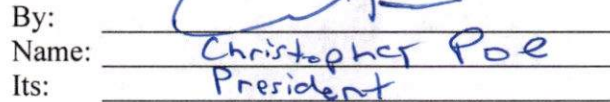 By:
Name: Christopher Poe
Its: President